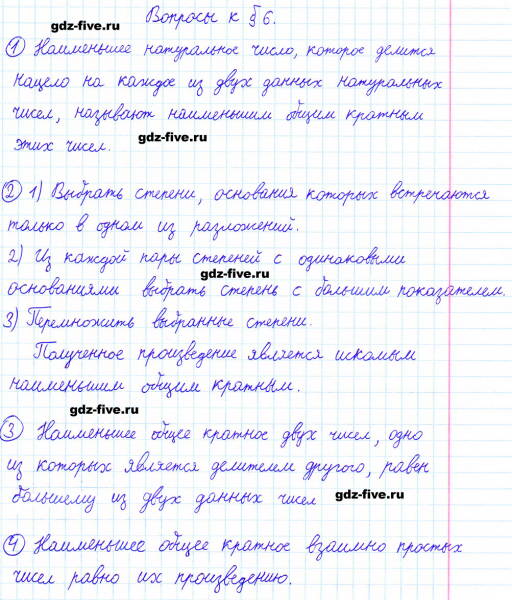 Вопросы к § 6.
gdz-five.ru
1 Наименьшее натуральное число, которое делится
нацело на каждое из двух данных натуральных
чисел, называют наименьшим общим кратным
gdz-five.ru
этих чисел.
2 1) Выбрать степени, основания которых встречаются
только в одном из разложений.
2) Из каждой пары степеней с одинаковыми
gdz-five.ru
основаниями выбрать степень с большим показателем.
3) Перемножить выбранные степени.
Полученное произведение является искомым
наименьшим общим кратным.
gdz-five.ru
3 Наименьшее общее кратное двух чисел, одно
из которых является делителем другого, равен
большему из двух данных чисел
gdz-five.ru
4 Наименьшее общее кратное взаимно простых
чисел равно их произведению.